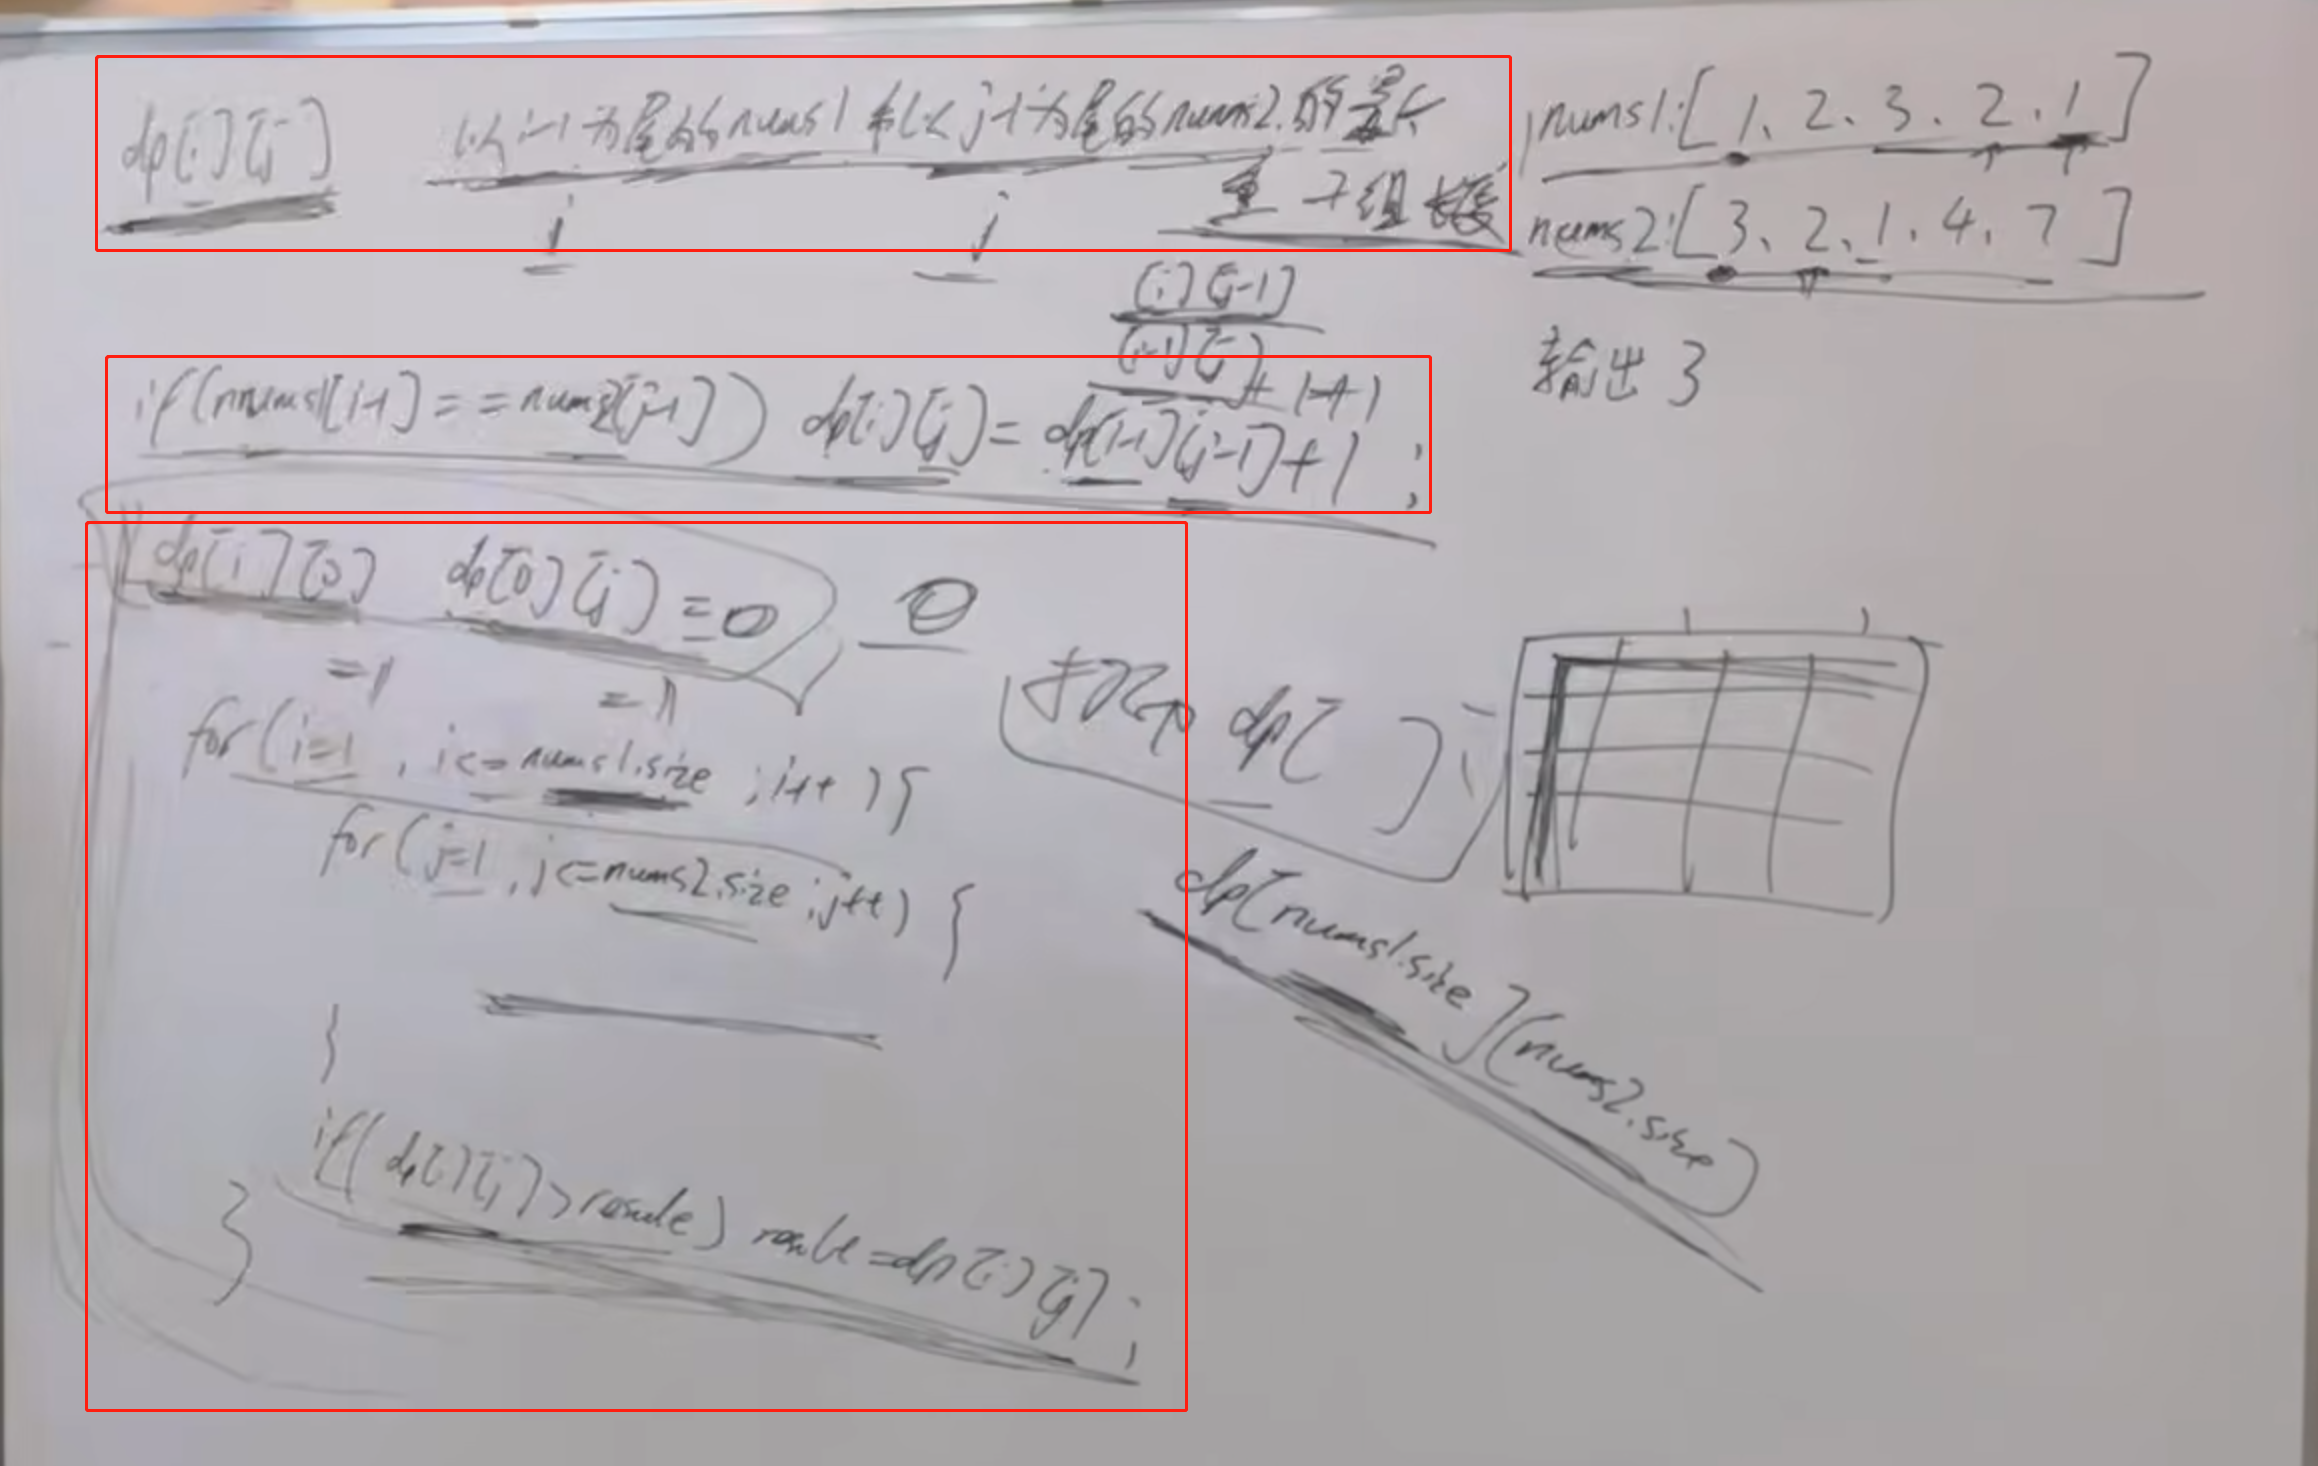 dp[i][j] 以i-1为尾的nums1和以j-1为尾的nums2的最长
重复子数组长度
i j
nums1:[1、2、3、2、1]
nums2:[3、2、1、4、7]
输出3
[i][j-1]
[i-1][j]+1+1
if(nums1[i-1]==nums2[j-1]) dp[i][j]=dp[i-1][j-1]+1;
dp[i][0] dp[0][j]=0 0
=1 =1
for(i=1,i<=nums1.size;i++){
for(j=1,j<=nums2.size;j++){
}
if(dp[i][j]>result) result=dp[i][j];
}
打印dp[ ]
dp[nums1.size][nums2.size]